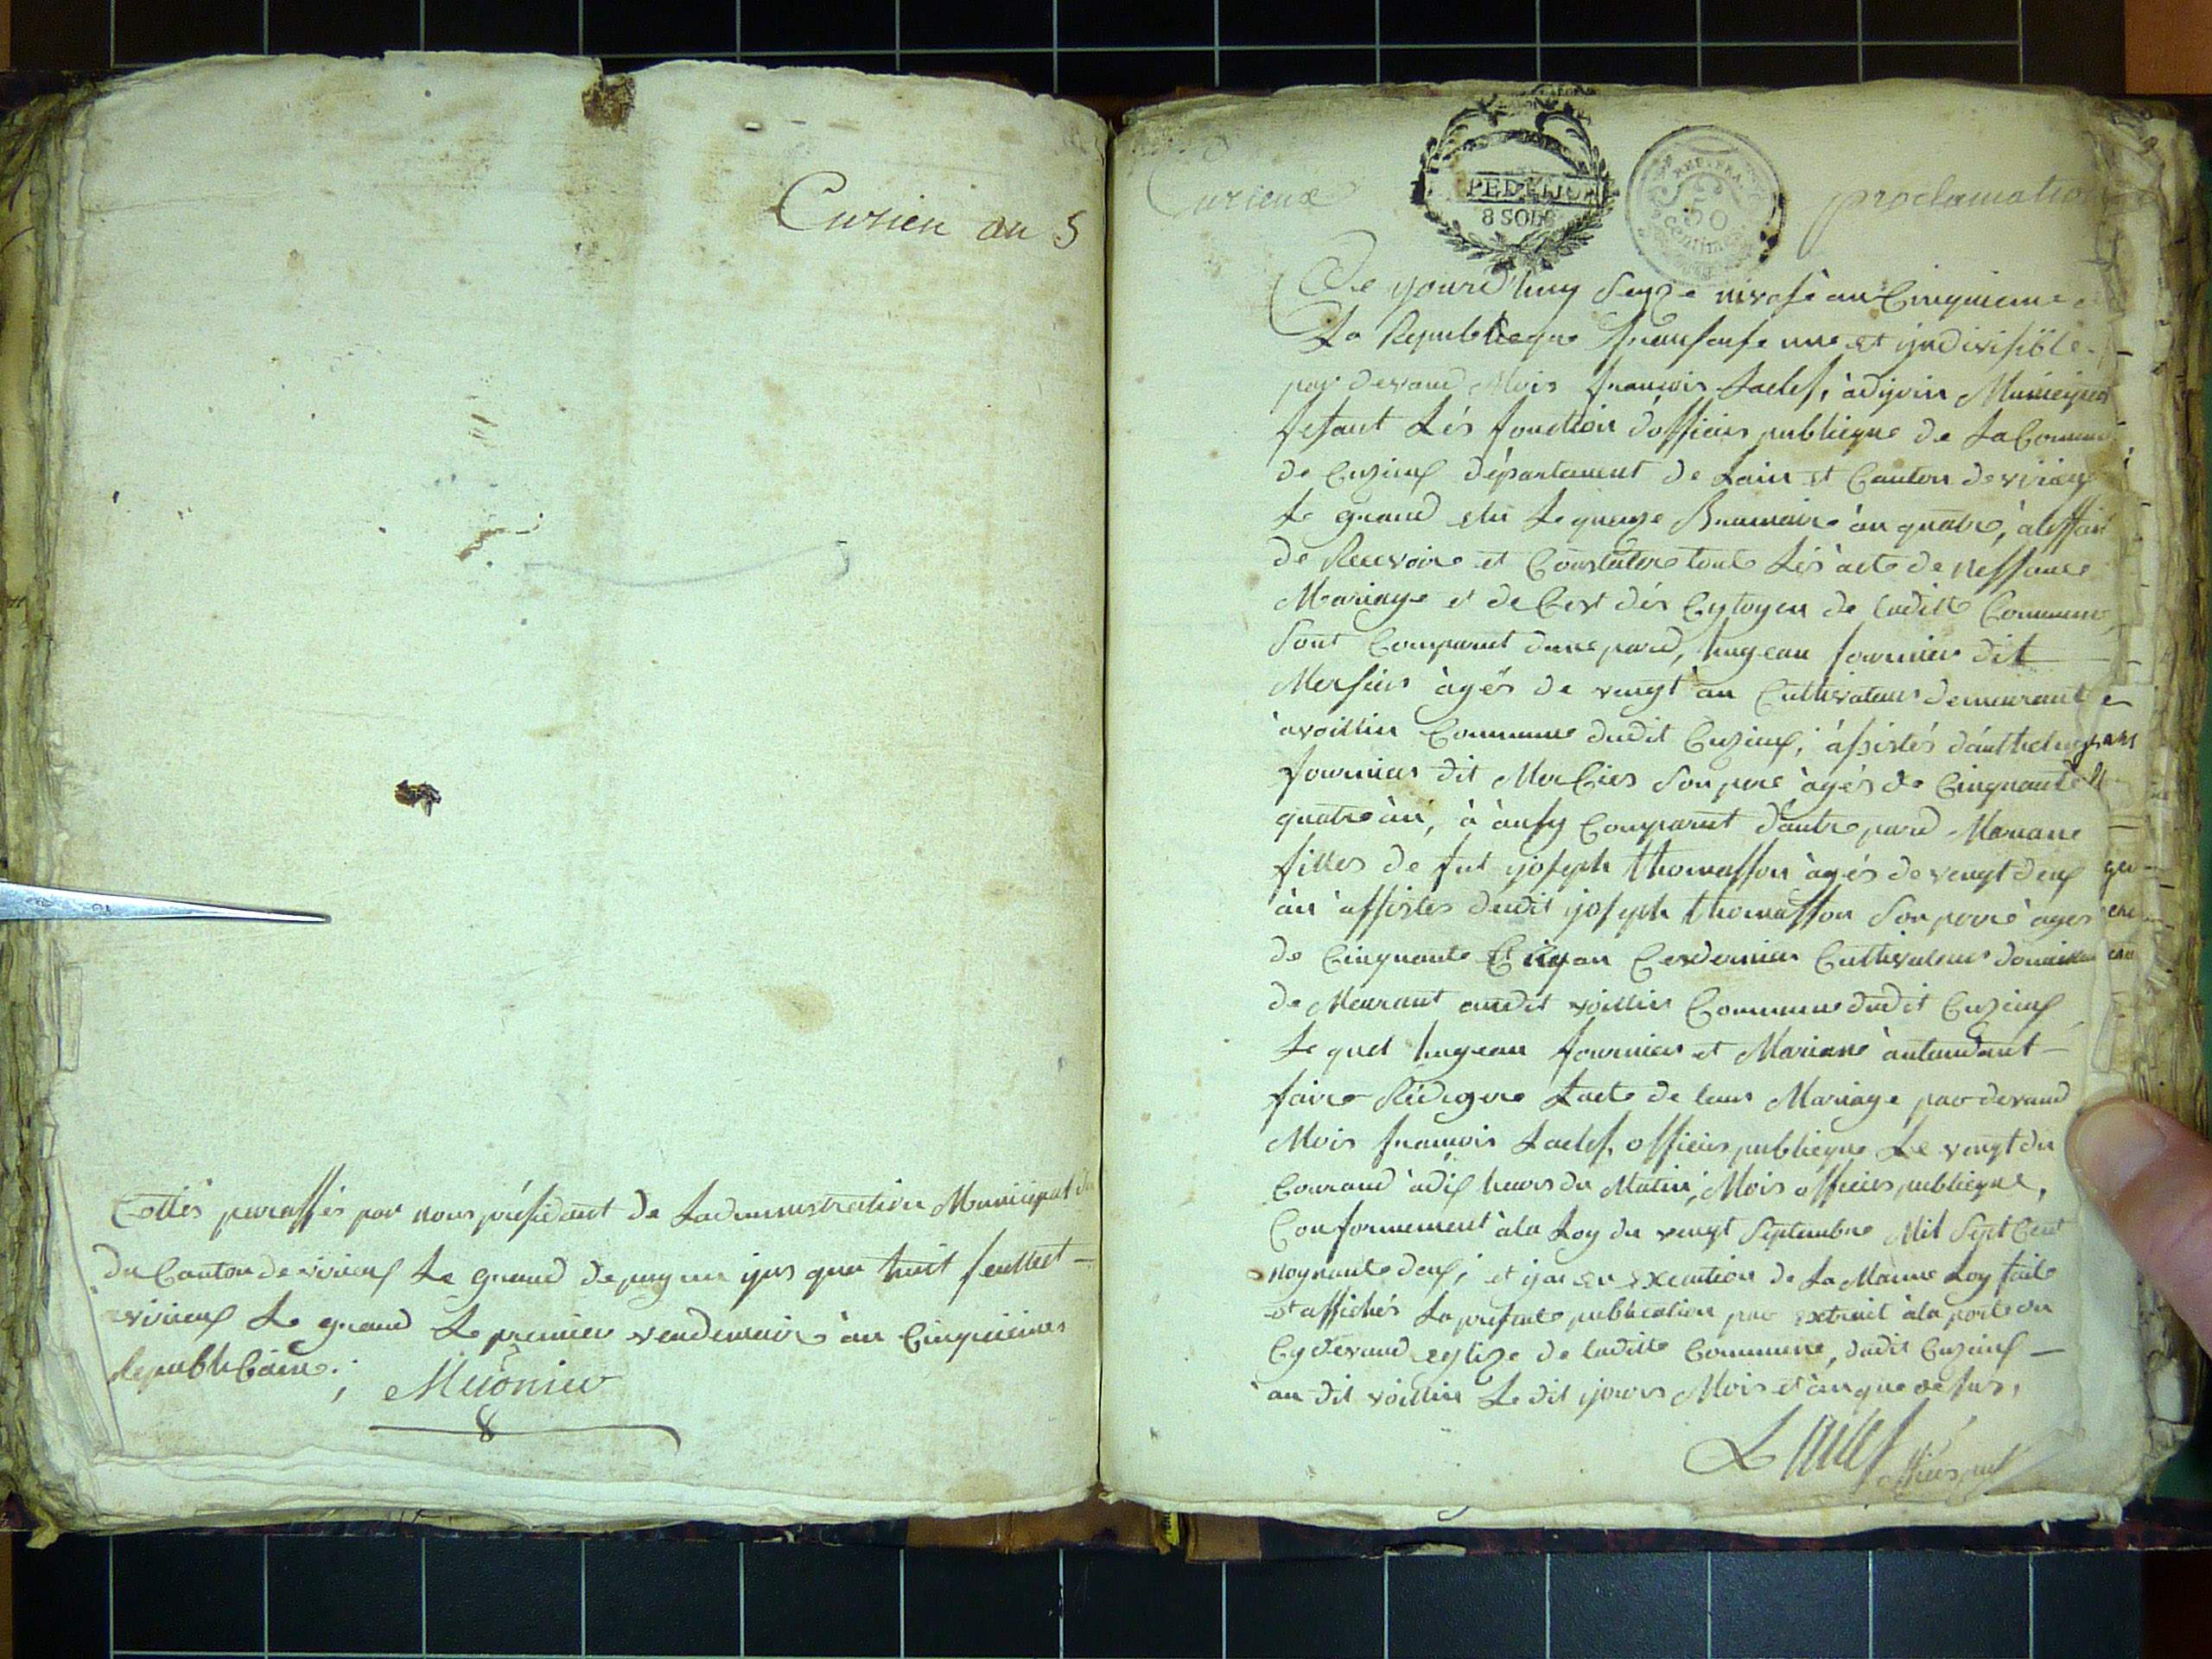 Cuzieu an 5
Cottés paraffés par nous présidant de Ladministration Municipal du
du Canton de virieux Le grand depuy un ijus que huit feullet
virieux Le grand Le premier vendemaire àn Cinquieimes
Republicaine ;
Meonier
Cuzieux
PEDITION
8 SOLS
REP. FRA.
50
Centimes
proclamation
Ce yourd'huy seyze nivose àn Cinquieme
La Republieque fransaise une et yndivisible
par devand Mois francois Laclef, àdjoin Municipal
fesant Lés fonction d'officier publieque de La Commune
de Cuzieux département de Lain et Canton de virieux
Le grand elu Le quinze Brumaire àn quatre, à leffait
de Recevoire et Constatere toute Lés àcte de nessance
Mariage et de Cest dés Cytoyen de laditte Commune
Sont Comparut dune pard, hugeau fournier dit
Mersier àgés de vingt àn Cultivateur demeurant
àvoillin Commune dudit Cuzieux, àssistés d'anthelme
fournier dit Mercier Son pere àgés de Cinquante
quatre àn, à àusy Comparut d'autre pard Mariane
filles de fut yoseph thomasson àgés de vingt deux
àn àssistes dudit yoseph thomasson Son perre àges
de Cinquante àn Cerdernier Cultivateur
de Meurant audit voillin Commune dudit Cuzieux
Le quel hugeau fournier et Mariane àntandant
faire Rédigere Lacte de leur Mariage par devand
Mois francois Laclef, officier publieque Le vingt du
Courand àdix heure du Matin, Mois officier publieque,
Conformement àla Loy du vingt Septembre Mil Sept Cent
noynante deux, et ijai en execution de La Maime Loy faite
et affichés La presente publication par extrait àla porte du
Cy devand eglize de laditte Commune, dudit Cuzieux
au dit voillin Le dit yours Mois et àn que desus,
Laclef officier publ